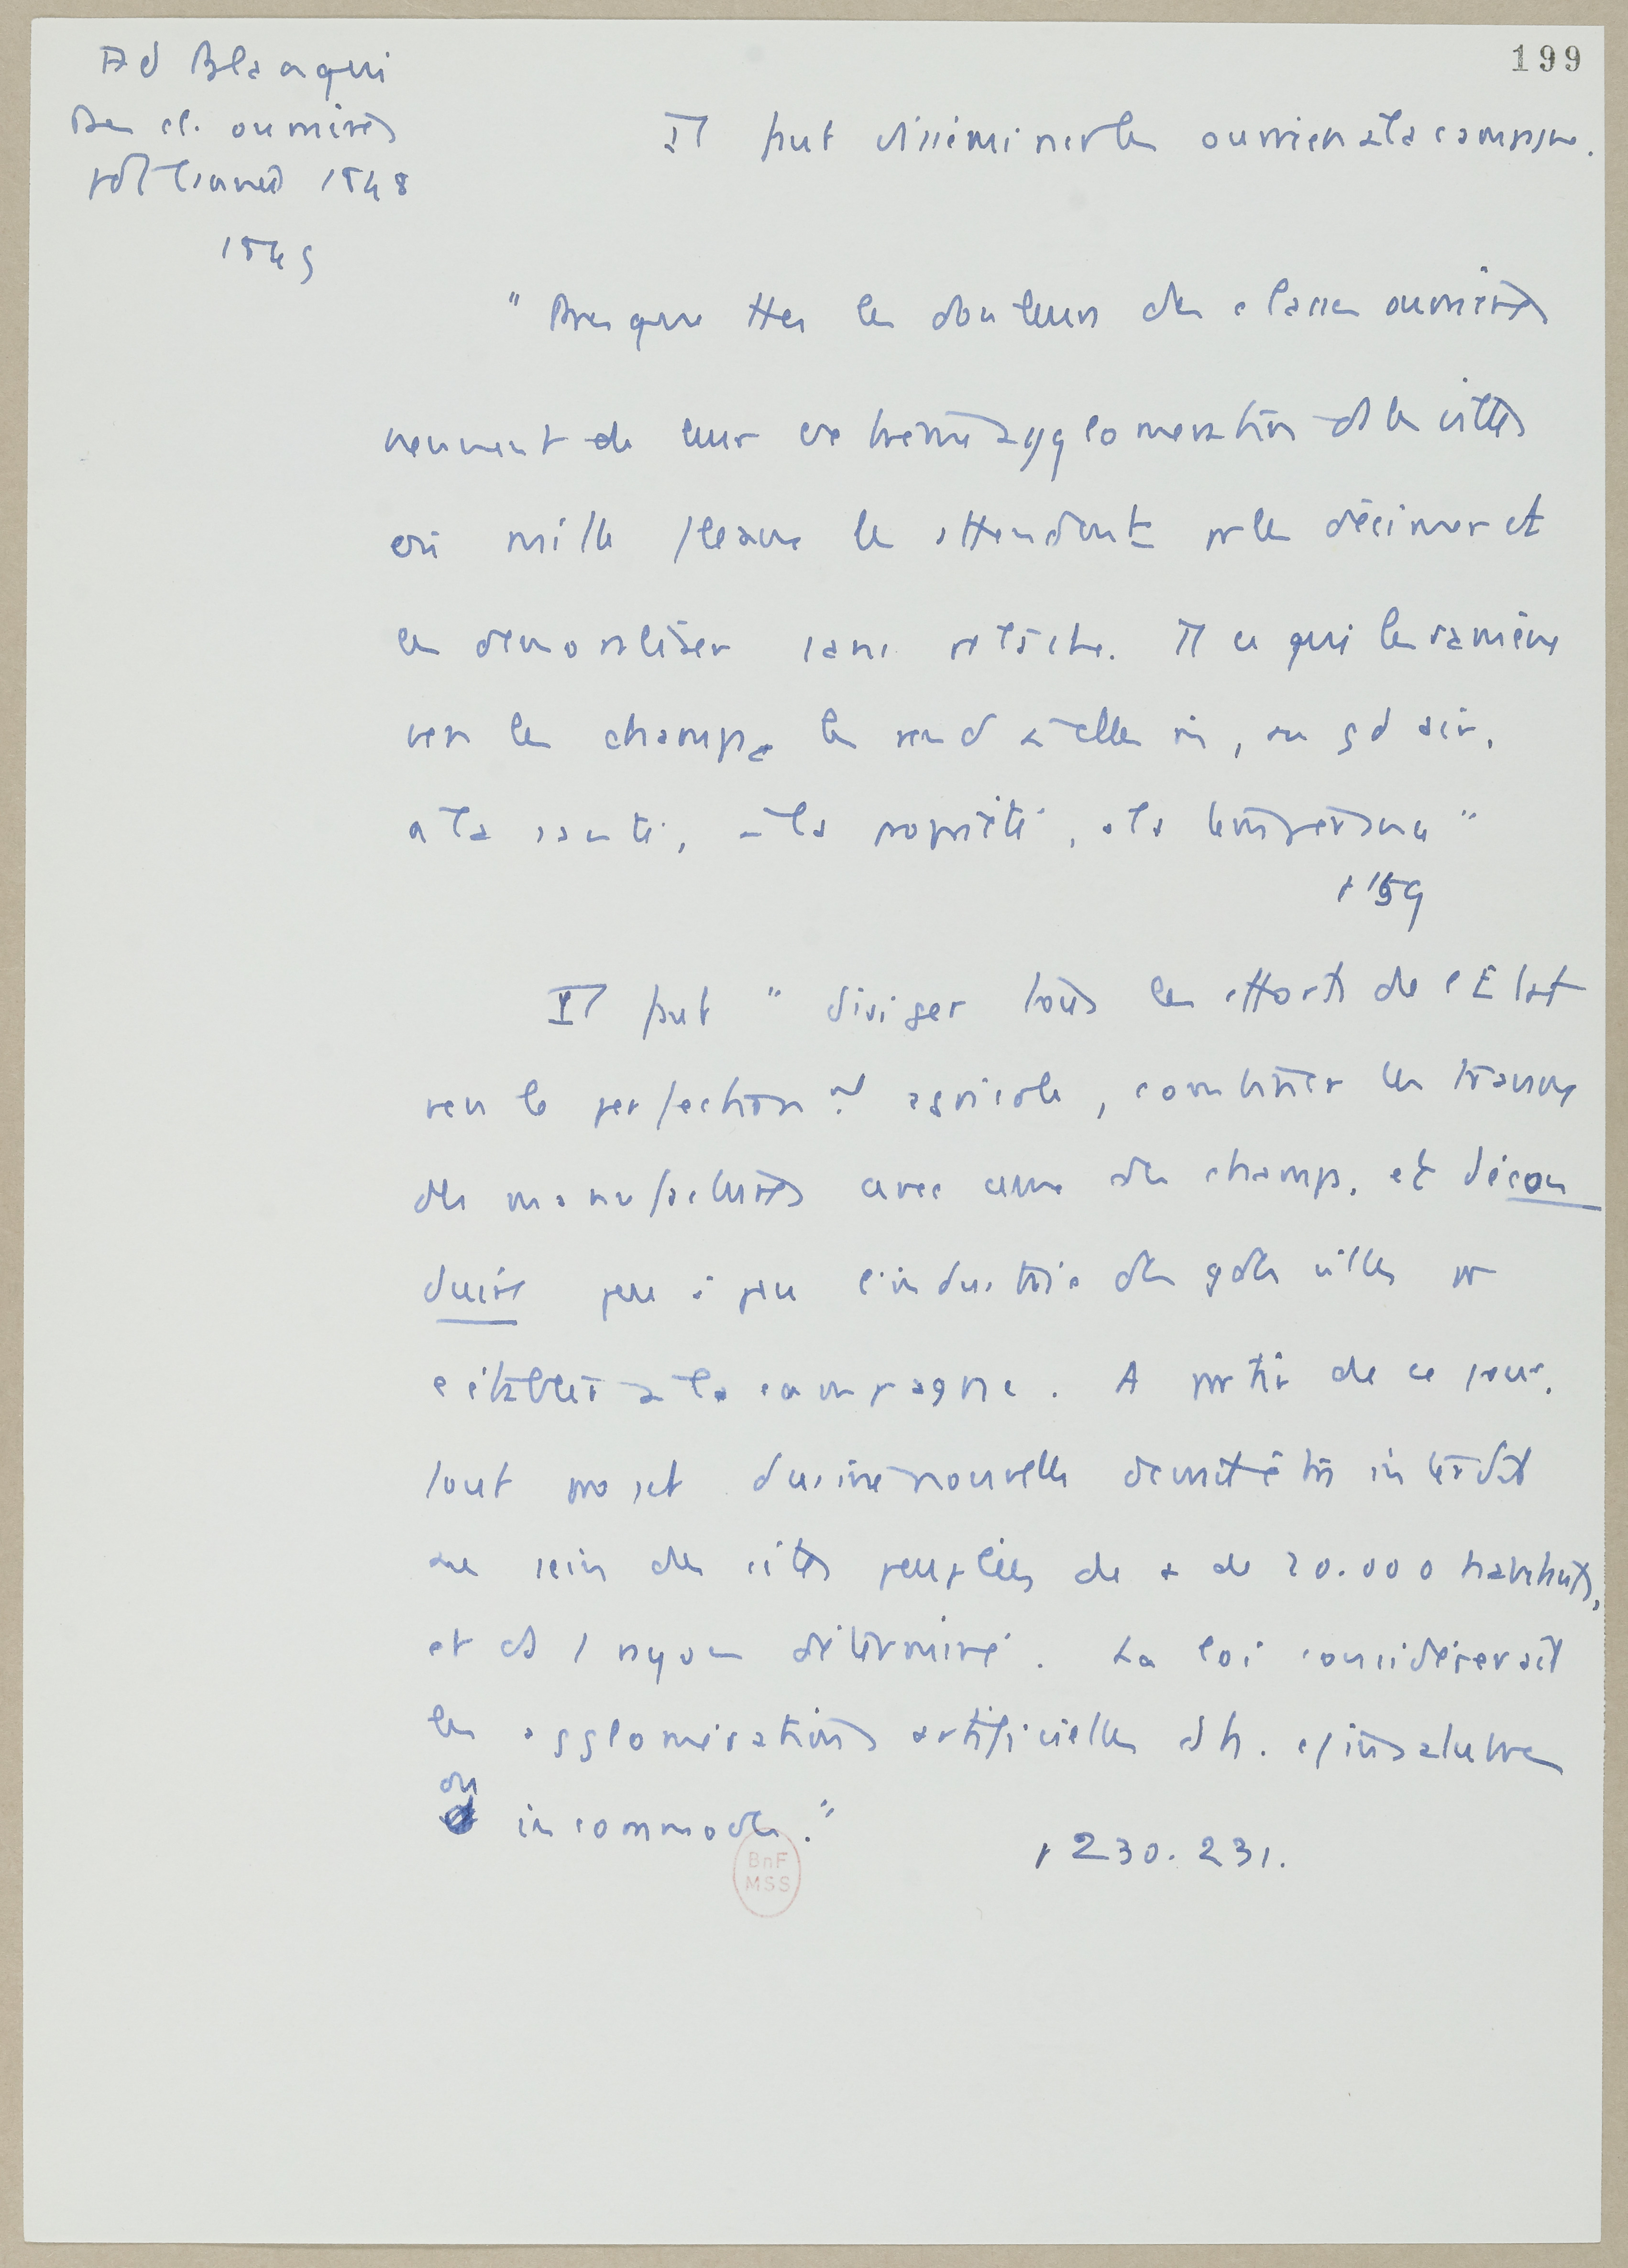 199
Ad Blanqui
Des cl. ouvrières
pdt l'année 1848
1849
Il faut disséminer les ouvriers à la campagne.
" Presque ttes les douleurs des classes ouvrières
viennent de leur extrême agglomération ds les villes
où mille fléaux les attendent pr les décimer et
les démoraliser sans relâche. Tt ce qui les ramène
vers les champs les rend à elles mêmes, au gd air,
à la santé, à la propriété, à la tempérance "
p 159
Il faut " diriger tous les efforts de l'Etat
vers le perfectionnt agricole, combiner les travaux
des manufactures avec ceux des champs, et décon
duire peu à peu l'industrie des gdes villes pr
l'établir à la campagne. A partir de ce jour,
tout projet d'usine nouvelle devrait être interdit
au sein des cités peuplées de + de 20.000 habitants,
et ds 1 rayon déterminé. La loi considérerait
les agglomérations artificielles d'h. insalubres
ou incommodes."
p 230. 231.
BnF
MSS